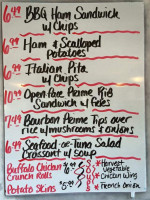 6.49 BBQ Ham Sandwich
w/ Chips
6.99 Ham & Scalloped
Potatoes
6.99 Italian Pita
w/ Chips
10.99 Open-face Prime Rib
Sandwich w/ Fries
7.49 Bourbon Prime Tips over
rice w/ mushrooms & onions
6.99 Seafood or Tuna Salad
Croissant w/ soup
Buffalo Chicken 6.99
Crunch Rolls
Potato Skins 5.99
* Harvest
Vegetable
* Chicken Wing
* French Onion